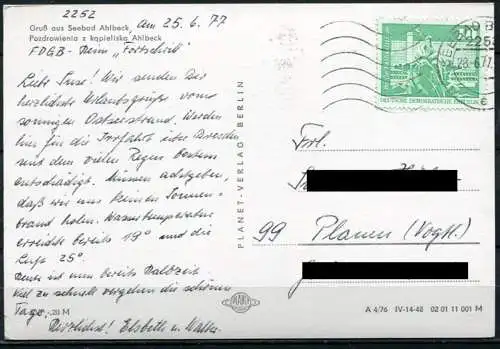 2252
am 25.6.77
Gruß aus Seebad Ahlbeck
Pozdrowienia z kąpieliska Ahlbeck
FDGB-Heim "Fortschritt"
Liebe Suse! Wir senden Dir
herzlichste Urlaubsgrüße vom
sonnigen Ostseestrand. Werden
hier für die Irrfahrt über Dresden
und den vielen Regen bestens
entschädigt. Müssen achtgeben,
daß wir uns keinen Sonnen-
brand holen. Wassertemperatur
erreichte bereits 19° und die
Luft 25°.
Heute ist nun bereits Halbzeit
viel zu schnell vergehen die schönen
Tage. Herzlichst! Elsbeth u. Walter
28 M
PLANET-VERLAG BERLIN
PLANET
DEUTSCHE DEMOKRATISCHE REPUBLIK
2252
-6.77
Frl.
99 Plauen (Vogtl.)
A 4/76 IV-14-48 02 01 11 001 M